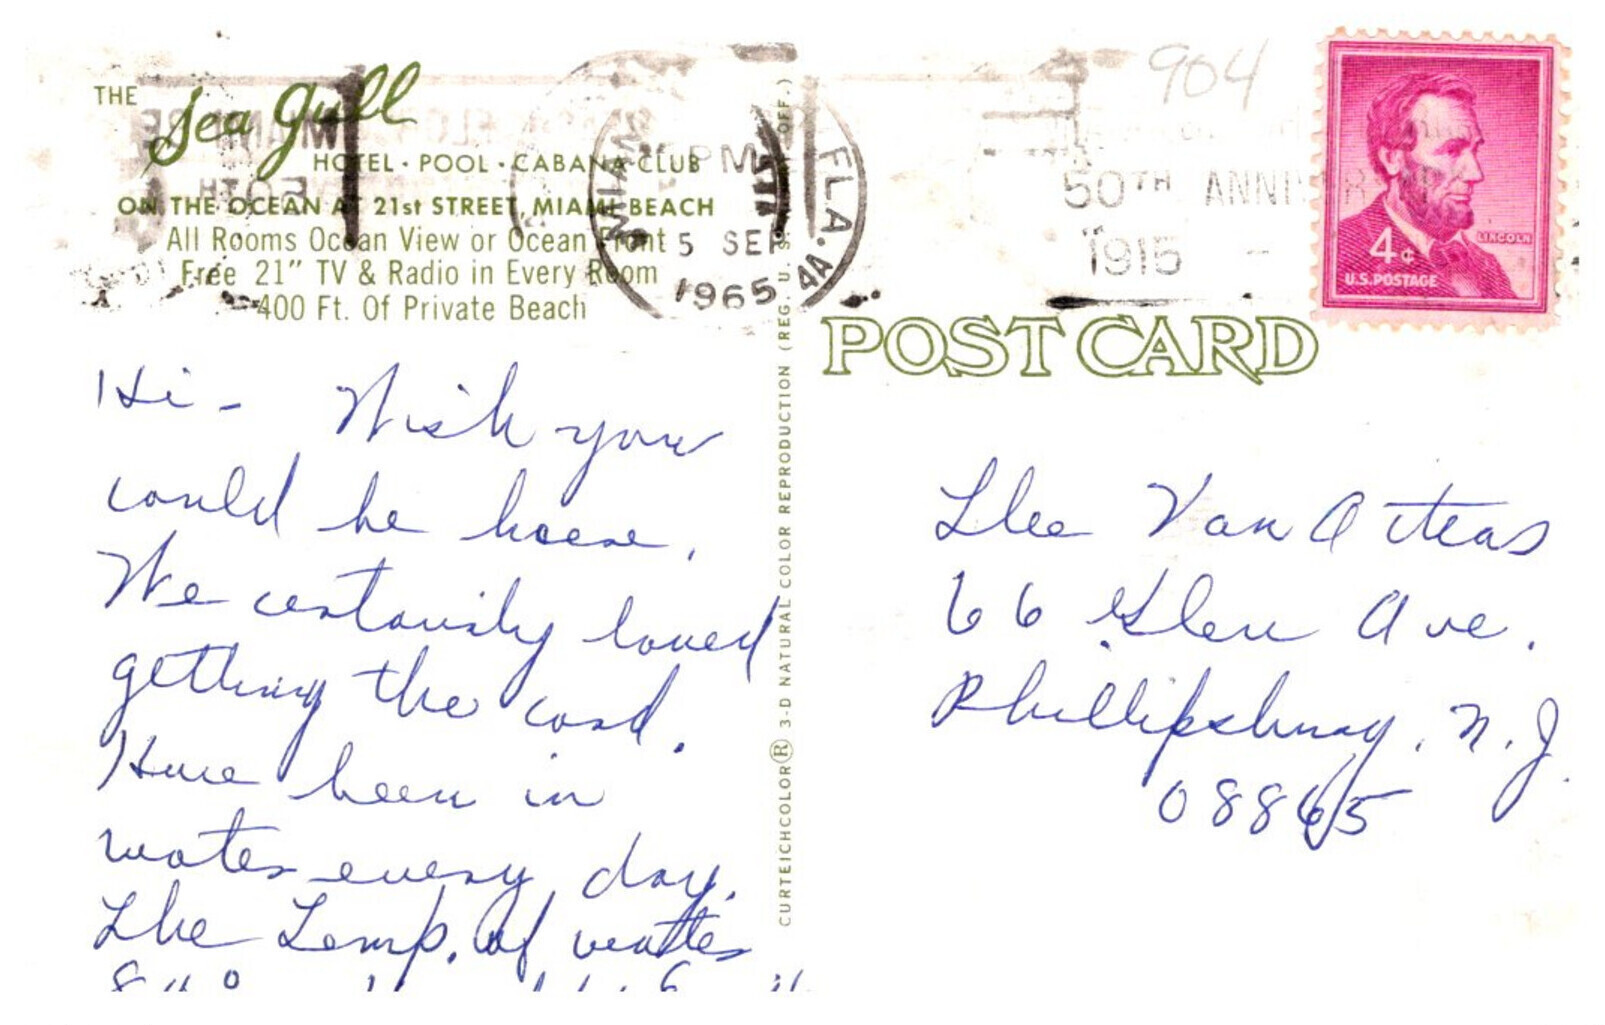 THE Sea Gull
HOTEL · POOL · CABANA CLUB
ON THE OCEAN AT 21st STREET, MIAMI BEACH
All Rooms Ocean View or Ocean Front
Free 21" TV & Radio in Every Room
400 Ft. Of Private Beach
MIAMI FLA.
PM
5 SEP
1965
4A
904
50TH ANNIVER
1915 -
4¢
LINCOLN
U.S. POSTAGE
POST CARD
CURTEICHCOLOR ® 3-D NATURAL COLOR REPRODUCTION (REG. U. S. OFF.)
Hi - Wish you
could be here.
We certainly loved
getting the card.
Have been in
water every day.
The Temp. of water
The Van
66 Glen Ave.
Phillipsburg, N.J.
08865